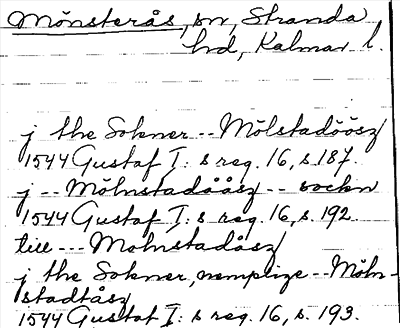 Mönsterås, sn, Stranda
hd, Kalmar l.
j the Sokner -- Mölstadöösz
1544 Gustaf I:s reg. 16, s. 187.
j -- Mölnstadåås -- sockn
1544 Gustaf I:s reg. 16, s. 192.
till --- Molnstadåsz
j the Sokner, nemplige -- Möln-
stadtåsz
1544 Gustaf I:s reg. 16, s. 193.